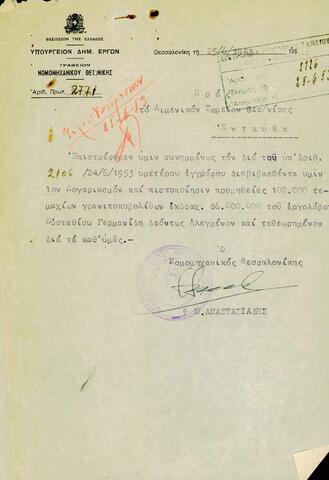 ΒΑΣΙΛΕΙΟΝ ΤΗΣ ΕΛΛΑΔΟΣ
ΥΠΟΥΡΓΕΙΟΝ ΔΗΜ. ΕΡΓΩΝ
ΓΡΑΦΕΙΟΝ
ΝΟΜΟΜΗΧΑΝΙΚΟΥ ΘΕΣ/ΝΙΚΗΣ
Ἀριθ. Πρωτ. 2771
Θεσσαλονίκη τῇ 25/6/1953 195
2126
25-6-53
Πρός
τό Λιμενικόν Ταμεῖον Θεσ/νίκης
Ἐνταῦθα
Ἐπιστρέφομεν ὑμῖν συνημμένως τόν διά τοῦ ὑπ'ἀριθ.
2106 /24/6/1953 ὑμετέρου ἐγγράφου διαβιβασθέντα ἡμῖν
1ον λογαριασμόν καί πιστοποίησιν προμηθείας 100.000 τε-
μαχίων γρανιτοκυβολίθων ἐκ δραχ. 86.000.000 τοῦ ἐργολάβου
Εὐσταθίου Γερμανίδη δεόντως ἠλεγμένον καί τεθεωρημένον
διά τά καθ'ὑμᾶς.
Ὁ
Νομομηχανικός Θεσσαλονίκης
Μ. ΑΝΑΣΤΑΣΙΑΔΗΣ